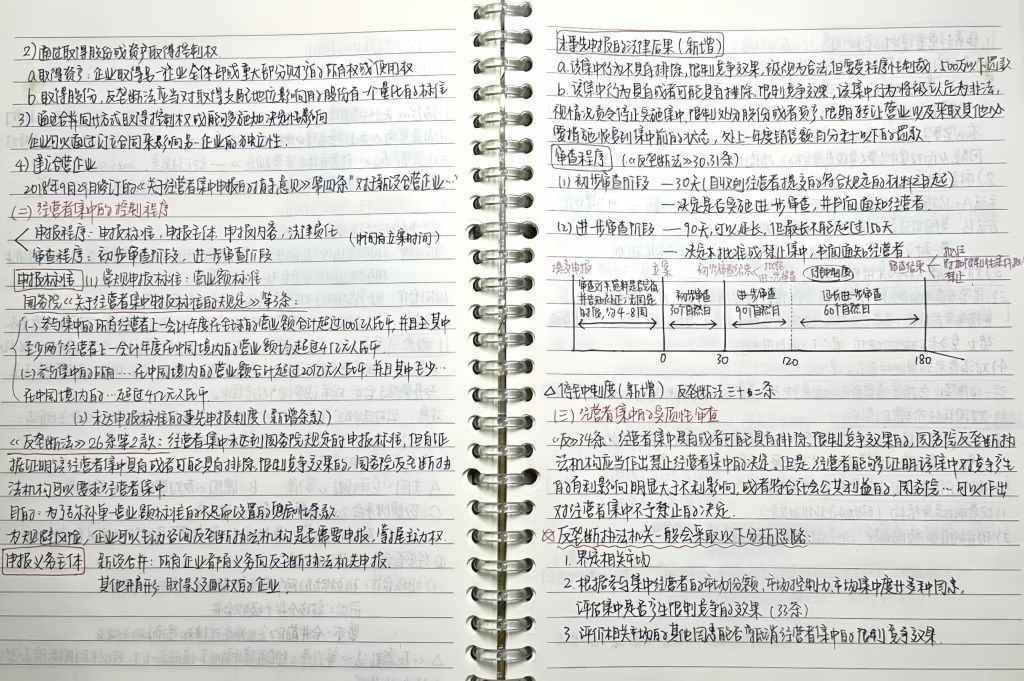 2) 通过取得股份或资产取得控制权
a.取得资产：企业取得另一企业全体部或重大部分财产的所有权或使用权
b.取得股份，反垄断法应当对取得支配地位影响的股份有一个量化的标准
3) 通过合同方式取得控制权或能够施加决定性影响
企业可以通过订立合同来影响另一企业的独立性.
4) 建立合营企业
2018年9月29日修订的《关于经营者集中申报的指导意见》第四条"对于新设合营企业…"
(二) 经营者集中的控制程序
申报程序：申报标准，申报主体，申报内容，法律责任
(时间为立案时间)
审查程序：初步审查阶段，进一步审查阶段
申报标准 (1) 常规申报标准：营业额标准
国务院《关于经营者集中申报标准的规定》第3条：
(一) 参与集中的所有经营者上一会计年度在全球的营业额合计超过100亿人民币，并且其中
至少两个经营者上一会计年度在中国境内的营业额均超过4亿人民币.
(二) 参与集中的所有… 在中国境内的营业额合计超过20亿人民币，并且其中至少…
在中国境内的… 超过4亿人民币
(2) 未达申报标准的事先申报制度 (新增条款)
《反垄断法》26条第2款：经营者集中未达到国务院规定的申报标准，但有证
据证明该经营者集中具有或者可能具有排除、限制竞争效果的，国务院反垄断执
法机构可以要求经营者集中.
目的：为了弥补单一营业额标准的不足而设置的兜底性条款
为规避风险，企业可以主动咨询反垄断执法机构是否需要申报，掌握主动权.
申报义务主体 新设合并：所有企业都有义务向反垄断执法机关申报.
其他情形：取得经配权的企业.
未事先申报的法律后果 (新增)
a.该集中行为不具有排除、限制竞争效果，被视为合法，但要受程序性制裁，500万以下罚款
b.该集中行为具有或者可能具有排除、限制竞争效果，该集中行为将被认定为非法，
视情况责令停止实施集中、限期处分股份或者资产、限期转让营业以及采取其他必
要措施恢复到集中前的状态，处上一年度销售额百分之十以下的罚款.
审查程序 (《反垄断法》30.31条)
(1) 初步审查阶段 —30天 (自收到经营者提交的符合规定的材料之日起)
—决定是否实施进一步审查，并书面通知经营者
(2) 进一步审查阶段 —90天，可以延长，但最长不能超过150天
—决定不批准或禁止集中，书面通知经营者.
递交申报 立案 初步审查结果 不批准 进一步审查 停钟制度 审查结果 不批准 附加限制性条件批准 禁止
初步审查 30自然日
进一步审查 90自然日
延长进一步审查 60自然日
0 30 120 180
△停钟制度 (新增) 反垄断法三十二条
(三) 经营者集中的实质性审查
《反》34条：经营者集中具有或者可能具有排除、限制竞争效果的，国务院反垄断执
法机构应当作出禁止经营者集中的决定. 但是，经营者能够证明该集中对竞争产生
的有利影响明显大于不利影响，或者符合社会公共利益的，国务院… 可以作出
对经营者集中不予禁止的决定.
☆反垄断执法机关一般会采取以下分析思路：
1. 界定相关市场
2. 根据参与集中经营者的市场份额、市场控制力、市场集中度什么种因素，
评估集中是否产生限制竞争的效果 (33条)
3. 评价相关市场的其他因素能否抵消经营者集中的限制竞争效果.